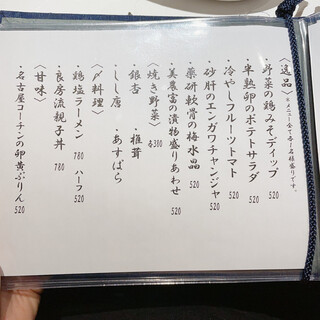 〈逸品〉※メニュー全て各1名様盛りです。
・野菜の鶏みそディップ 520
・半熟卵のポテトサラダ 520
・冷やしフルーツトマト 520
・砂肝のエンガワチャンジャ 520
・薬研軟骨の梅水晶 520
・美農富の漬物盛りあわせ 520
〈焼き野菜〉各380
・銀杏 ・椎茸
・しし唐 ・あすぱら
〈〆料理〉
・鶏塩ラーメン 780 ハーフ 520
・良房流親子丼 780
〈甘味〉
・名古屋コーチンの卵黄ぷりん 520